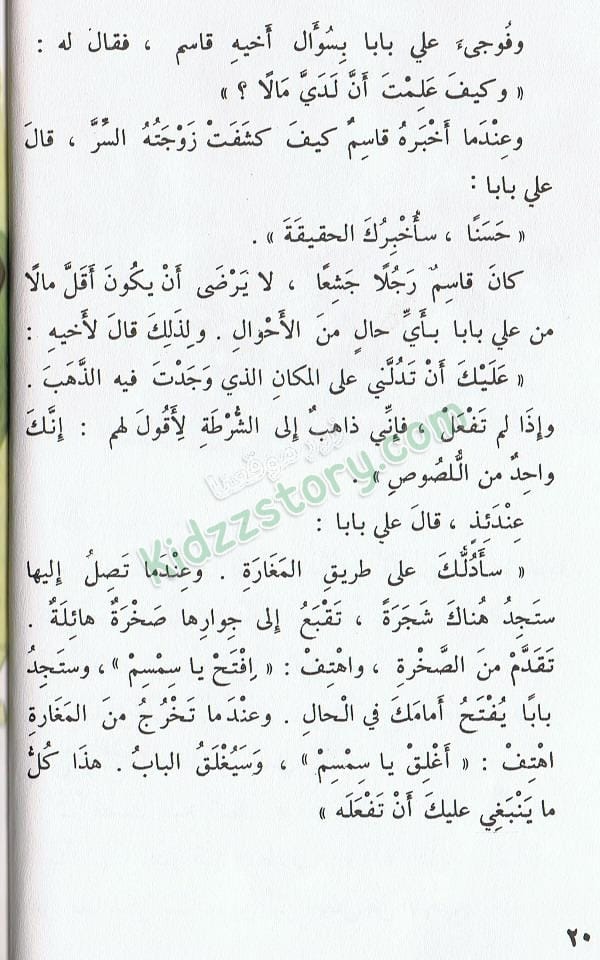 وفُوجىءَ علي بابا بِسُؤَال أَخيهِ قاسم ، فقالَ له :
« وكيفَ عَلِمْتَ أَنَّ لَدَيَّ مَالًا ؟ »
وعِنْدَما أَخْبَرهُ قاسِمٌ كيفَ كشَفَتْ زَوْجَتُهُ السِّرَّ ، قالَ
علي بابا :
« حَسَنًا ، سأُخْبِرُكَ الحقيقَةَ » .
كانَ قاسِمٌ رَجُلًا جَشِعًا ، لا يَرْضَى أَنْ يكُونَ أَقَلَّ مالًا
من علي بابا بأَيِّ حالٍ منَ الأَحْوالِ . ولِذَلِكَ قالَ لأَخيهِ :
« عَلَيْكَ أَنْ تَدُلَّني على المكانِ الذي وَجَدْتَ فيه الذَّهَبَ .
وإِذَا لم تَفْعَلْ ، فإِنِّي ذاهبٌ إلى الشُّرْطَةِ لِأَقُولَ لهم : إِنَّكَ
واحِدٌ من اللُّصوصِ » .
عِنْدَئِذٍ ، قالَ علي بابا :
« سأَدُلُّكَ على طريقِ المَغَارَةِ . وعِنْدَما تَصِلُ إليها
ستَجِدُ هُناكَ شَجَرَةً ، تَقْبَعُ إلى جِوارِها صَخْرَةٌ هائِلَةٌ .
تَقَدَّمْ منَ الصَّخْرةِ ، واهْتِفْ : « اِفْتَحْ يا سِمْسِمْ » ، وستَجِدُ
بابًا يُفْتَحُ أمامَكَ في الْحالِ . وعنْدَما تَخْرُجُ منَ المَغارَةِ
اهْتِفْ : « أَغْلِقْ يا سِمْسِمْ » ، وَسَيُغْلَقُ البابُ . هذَا كُلُّ
ما يَنْبَغِي عليكَ أَنْ تَفْعَلَه »
٢٠
زوروا موقعنا
Kidzzstory.com